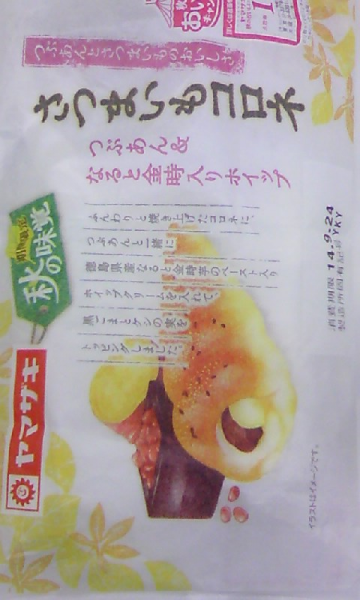 つぶあんとさつまいものおいしさ
さつまいもコロネ
つぶあん&
なると金時入りホイップ
ふんわりと焼き上げたコロネに、
つぶあんと一緒に
徳島県産なると金時芋のペースト入り
ホイップクリームを入れて、
黒ごまとケシの実を
トッピングしました。
秋の味覚
ヤマザキ
消費期限 14.9.24
製造所固有記号 YKY
イラストはイメージです。